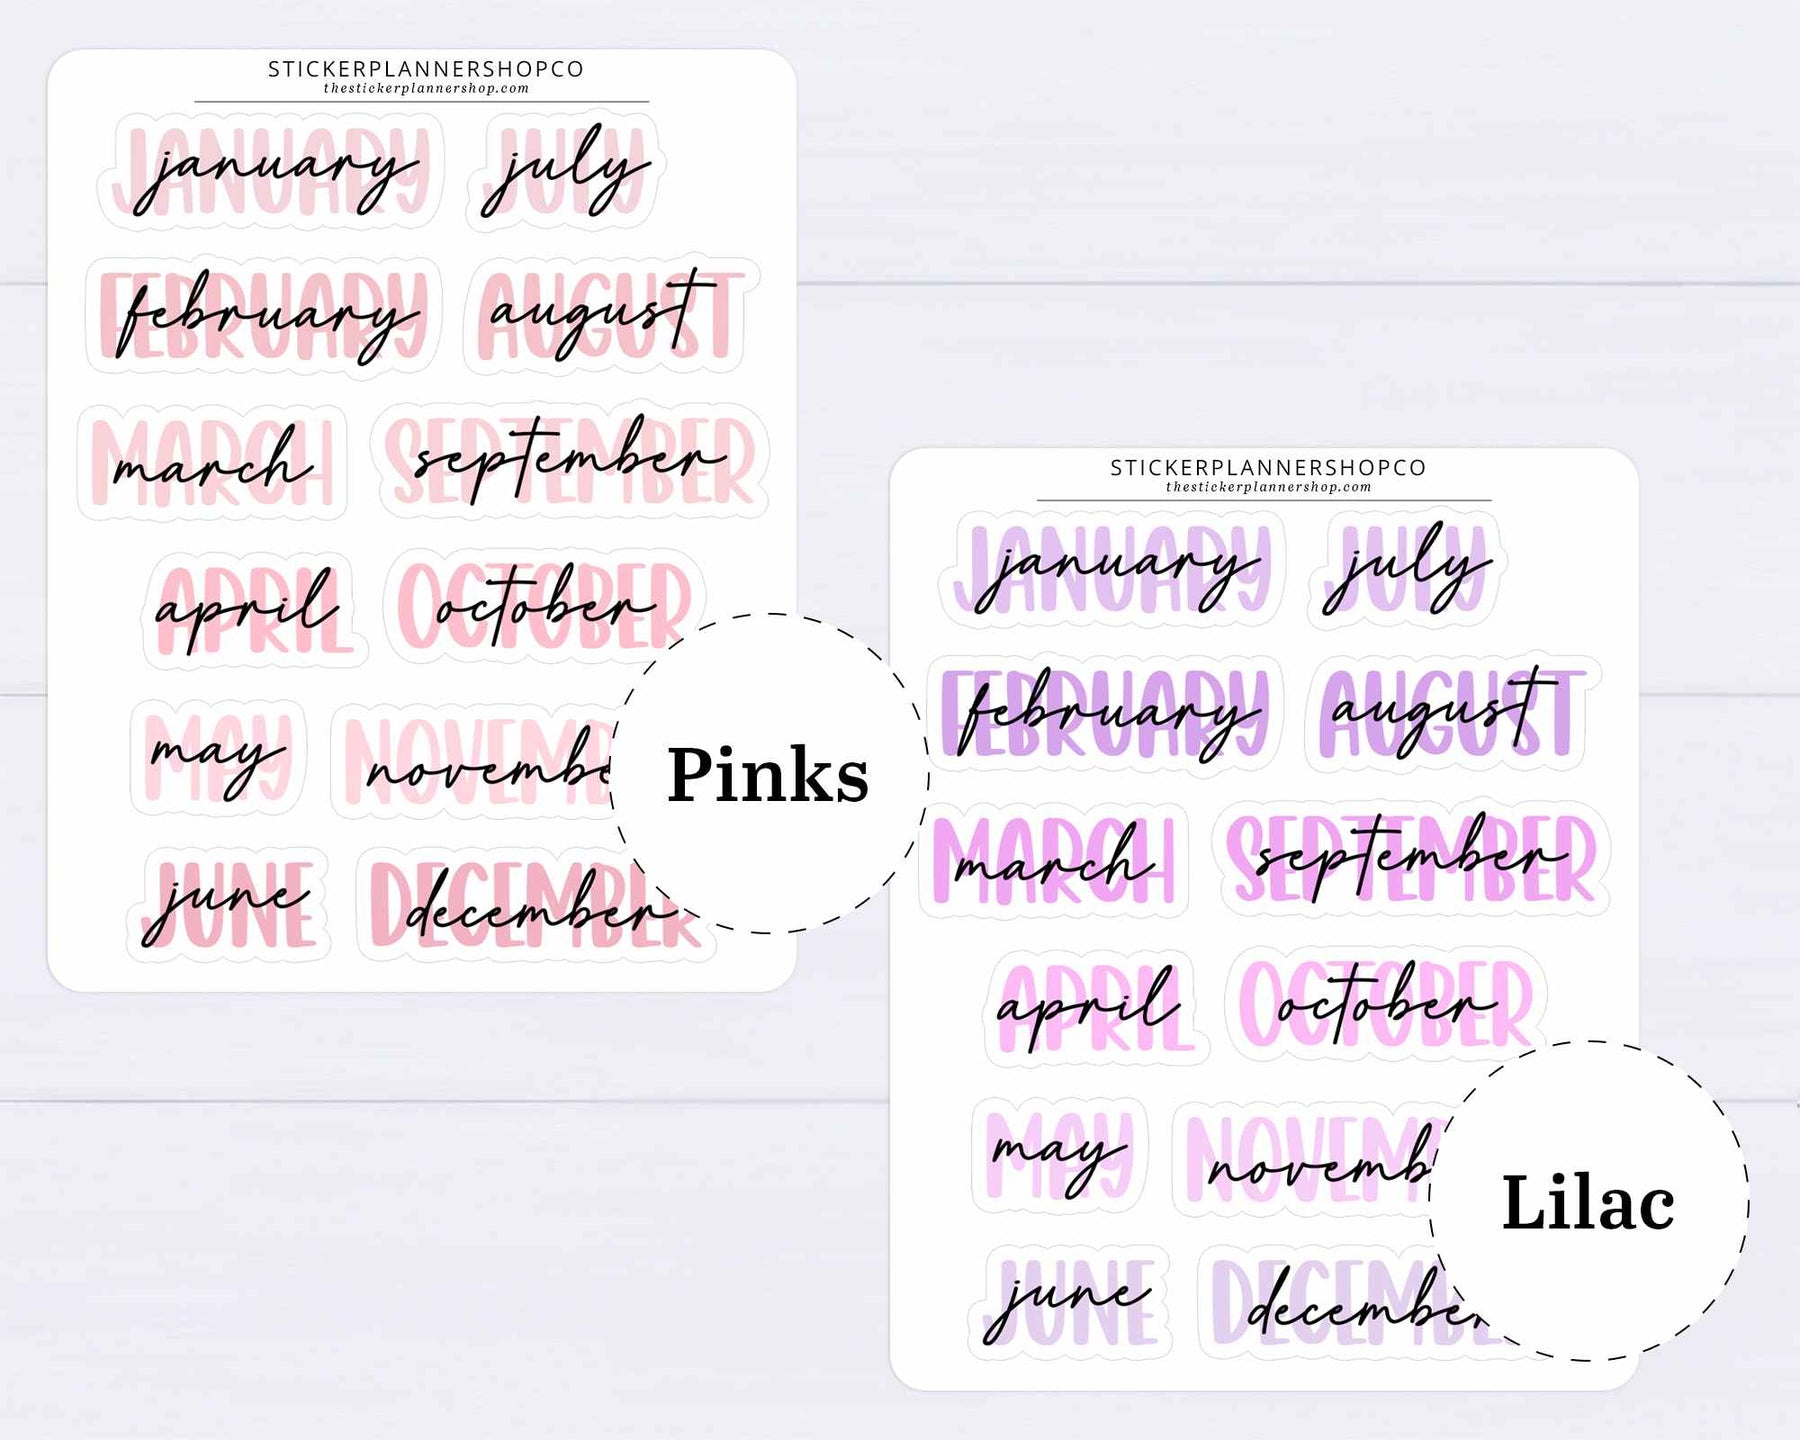 STICKERPLANNERSHOPCO
thestickerplannershop.com
JANUARY january JULY july
FEBRUARY february AUGUST august
MARCH march SEPTEMBER september
APRIL april OCTOBER october
MAY may NOVEMB novembe
JUNE june DECEMBER december
Pinks
STICKERPLANNERSHOPCO
thestickerplannershop.com
JANUARY january JULY july
FEBRUARY february AUGUST august
MARCH march SEPTEMBER september
APRIL april OCTOBER october
MAY may NOVEM novemb
JUNE june DECEMBE december
Lilac